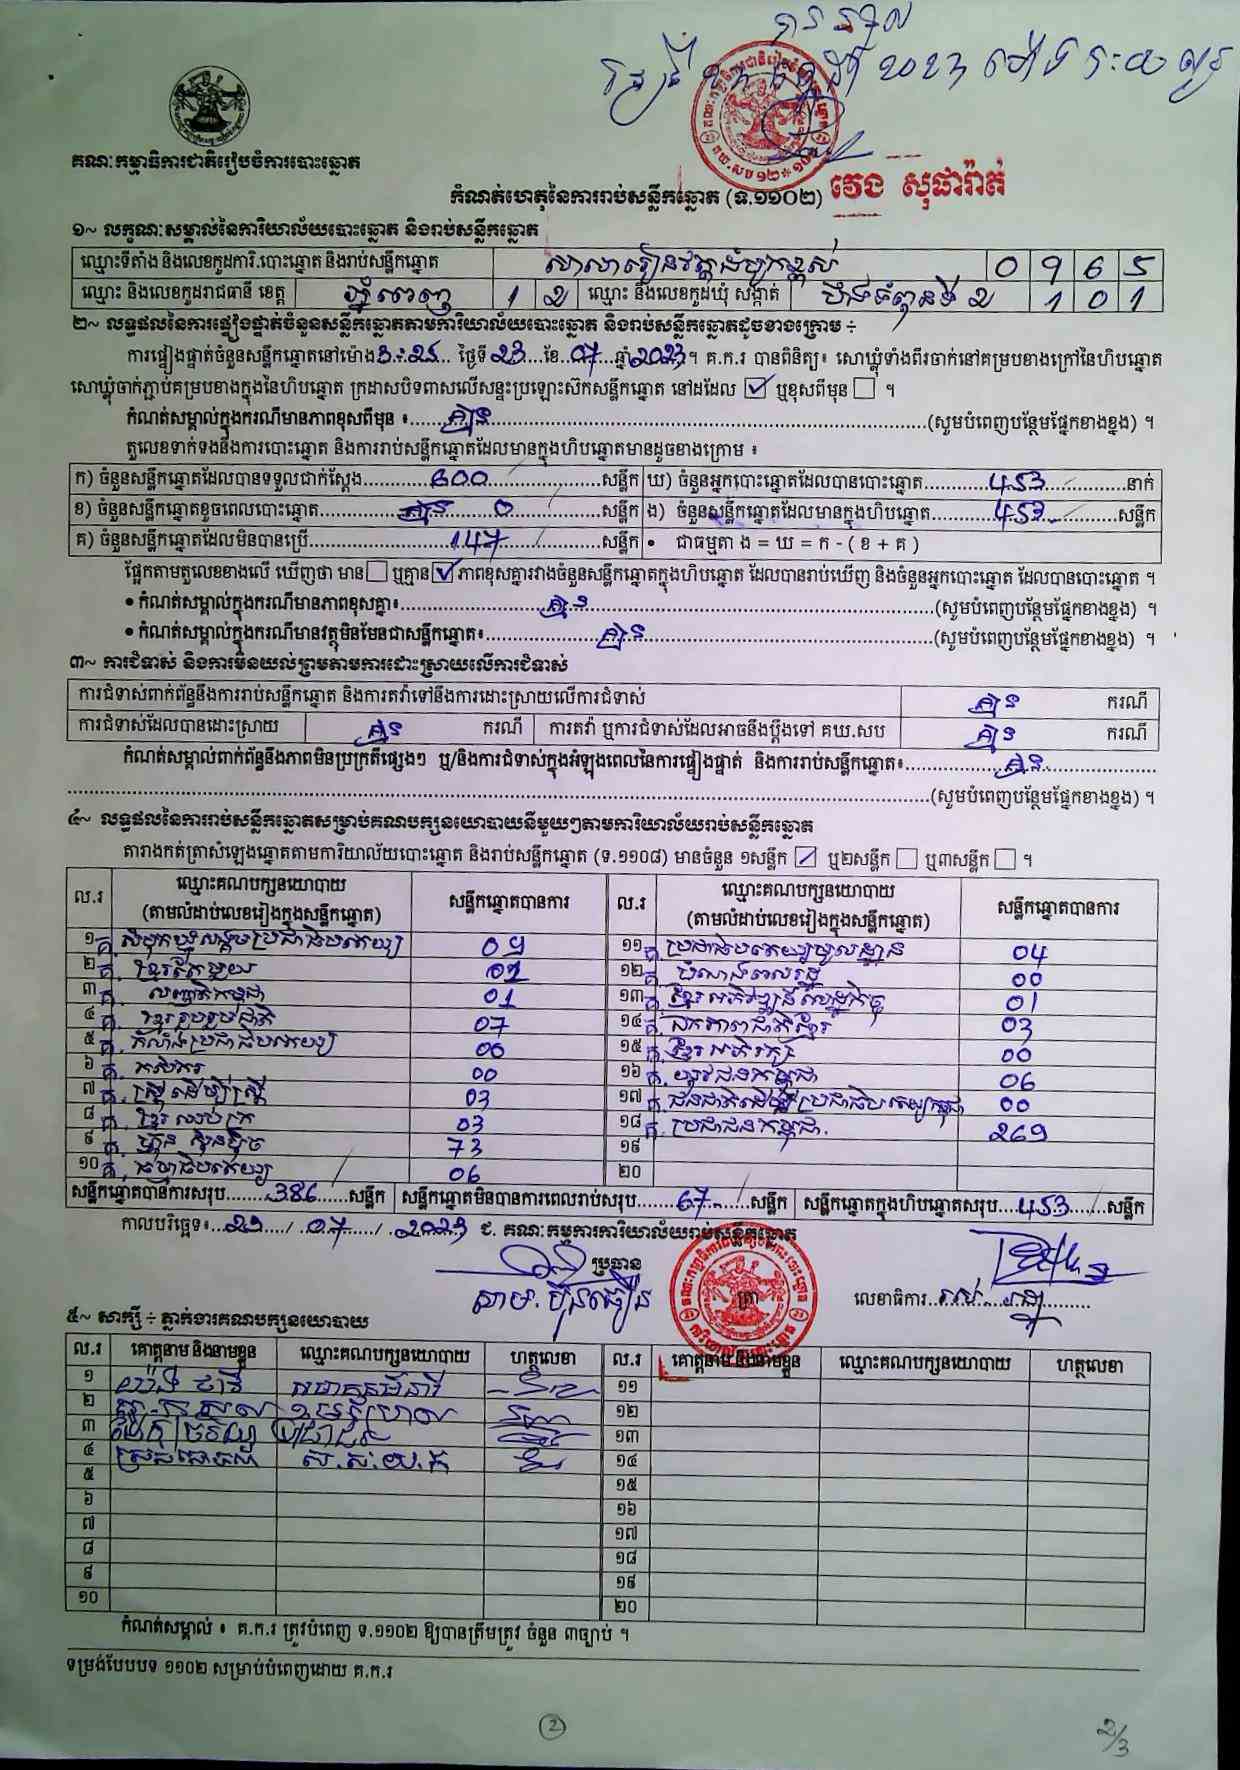 បានទទួល
2023 ម៉ោង
គណៈកម្មាធិការជាតិរៀបចំការបោះឆ្នោត
កំណត់ហេតុនៃការរាប់សន្លឹកឆ្នោត (ទ.១១០២)
វេង សុផារ៉ាត់
១~ លក្ខណៈសម្គាល់នៃការិយាល័យបោះឆ្នោត និងរាប់សន្លឹកឆ្នោត
ឈ្មោះទីតាំង និងលេខកូដការិ.បោះឆ្នោត និងរាប់សន្លឹកឆ្នោត សាលារៀនវត្តចំពុះក្អែក 0 9 6 5
ឈ្មោះ និងលេខកូដរាជធានី ខេត្ត ភ្នំពេញ 1 2 ឈ្មោះ និងលេខកូដឃុំ សង្កាត់ បឹងទំពុនទី 2 1 0 1
២~ លទ្ធផលនៃការផ្ទៀងផ្ទាត់ចំនួនសន្លឹកឆ្នោតតាមការិយាល័យបោះឆ្នោត និងរាប់សន្លឹកឆ្នោតដូចខាងក្រោម ÷
ការផ្ទៀងផ្ទាត់ចំនួនសន្លឹកឆ្នោតនៅម៉ោង 3:25 ថ្ងៃទី 23 ខែ 07 ឆ្នាំ 2023។ គ.ក.រ បានពិនិត្យ៖ សោឃ្លុំទាំងពីរចាក់នៅគម្របខាងក្រៅនៃហិបឆ្នោត
សោឃ្លុំចាក់ភ្ជាប់គម្របខាងក្នុងនៃហិបឆ្នោត ក្រដាសបិទពាសលើសន្ទះប្រឡោះស៊កសន្លឹកឆ្នោត នៅដដែល ឬខុសពីមុន ។
កំណត់សម្គាល់ក្នុងករណីមានភាពខុសពីមុន ៖ គ្មាន (សូមបំពេញបន្ថែមផ្នែកខាងខ្នង) ។
តួលេខទាក់ទងនឹងការបោះឆ្នោត និងការរាប់សន្លឹកឆ្នោតដែលមានក្នុងហិបឆ្នោតមានដូចខាងក្រោម ៖
ក) ចំនួនសន្លឹកឆ្នោតដែលបានទទួលជាក់ស្តែង 600 សន្លឹក ឃ) ចំនួនអ្នកបោះឆ្នោតដែលបានបោះឆ្នោត 453 នាក់
ខ) ចំនួនសន្លឹកឆ្នោតខូចពេលបោះឆ្នោត គ្មាន 0 សន្លឹក ង) ចំនួនសន្លឹកឆ្នោតដែលមានក្នុងហិបឆ្នោត 453 សន្លឹក
គ) ចំនួនសន្លឹកឆ្នោតដែលមិនបានប្រើ 147 សន្លឹក • ជាធម្មតា ង = ឃ = ក - ( ខ + គ )
ផ្អែកតាមតួលេខខាងលើ ឃើញថា មាន ឬគ្មាន ភាពខុសគ្នារវាងចំនួនសន្លឹកឆ្នោតក្នុងហិបឆ្នោត ដែលបានរាប់ឃើញ និងចំនួនអ្នកបោះឆ្នោត ដែលបានបោះឆ្នោត ។
• កំណត់សម្គាល់ក្នុងករណីមានភាពខុសគ្នា៖ គ្មាន (សូមបំពេញបន្ថែមផ្នែកខាងខ្នង) ។
• កំណត់សម្គាល់ក្នុងករណីមានវត្ថុមិនមែនជាសន្លឹកឆ្នោត៖ គ្មាន (សូមបំពេញបន្ថែមផ្នែកខាងខ្នង) ។
៣~ ការជំទាស់ និងការមិនយល់ព្រមតាមការដោះស្រាយលើការជំទាស់
ការជំទាស់ពាក់ព័ន្ធនឹងការរាប់សន្លឹកឆ្នោត និងការតវ៉ាទៅនឹងការដោះស្រាយលើការជំទាស់ គ្មាន ករណី
ការជំទាស់ដែលបានដោះស្រាយ គ្មាន ករណី ការតវ៉ា ឬការជំទាស់ដែលអាចនឹងប្តឹងទៅ គឃ.សប គ្មាន ករណី
កំណត់សម្គាល់ពាក់ព័ន្ធនឹងភាពមិនប្រក្រតីផ្សេងៗ ឬ/និងការជំទាស់ក្នុងអំឡុងពេលនៃការផ្ទៀងផ្ទាត់ និងការរាប់សន្លឹកឆ្នោត៖ គ្មាន
(សូមបំពេញបន្ថែមផ្នែកខាងខ្នង) ។
៤~ លទ្ធផលនៃការរាប់សន្លឹកឆ្នោតសម្រាប់គណបក្សនយោបាយនីមួយៗតាមការិយាល័យរាប់សន្លឹកឆ្នោត
តារាងកត់ត្រាសំឡេងឆ្នោតតាមការិយាល័យបោះឆ្នោត និងរាប់សន្លឹកឆ្នោត (ទ.១១០៨) មានចំនួន ១សន្លឹក ឬ២សន្លឹក ឬ៣សន្លឹក ។
ល.រ ឈ្មោះគណបក្សនយោបាយ (តាមលំដាប់លេខរៀងក្នុងសន្លឹកឆ្នោត) សន្លឹកឆ្នោតបានការ ល.រ ឈ្មោះគណបក្សនយោបាយ (តាមលំដាប់លេខរៀងក្នុងសន្លឹកឆ្នោត) សន្លឹកឆ្នោតបានការ
១ គ. សំបុកឃ្មុំសង្គមប្រជាធិបតេយ្យ 09 ១១ គ. ប្រជាធិបតេយ្យមូលដ្ឋាន 04
២ គ. ខ្មែរតែមួយ 01 ១២ គ. បំណងពលរដ្ឋ 00
៣ គ. សញ្ជាតិកម្ពុជា 01 ១៣ គ. ខ្មែរអភិវឌ្ឍន៍សេដ្ឋកិច្ច 01
៤ គ. ខ្មែររួបរួមជាតិ 07 ១៤ គ. ឯកភាពជាតិខ្មែរ 03
៥ គ. កំលាំងប្រជាធិបតេយ្យ 00 ១៥ គ. ខ្មែរអភិរក្ស 00
៦ គ. កសិករ 00 ១៦ គ. យុវជនកម្ពុជា 06
៧ គ. ស្ត្រីដើម្បីស្ត្រី 03 ១៧ គ. ជនជាតិដើមប្រជាធិបតេយ្យកម្ពុជា 00
៨ គ. ខ្មែរឈប់ក្រ 03 ១៨ គ. ប្រជាជនកម្ពុជា. 269
៩ គ. ហ៊្វុនស៊ិនប៉ិច 73 ១៩
១០ គ. ធម្មាធិបតេយ្យ 06 ២០
សន្លឹកឆ្នោតបានការសរុប 386 សន្លឹក សន្លឹកឆ្នោតមិនបានការពេលរាប់សរុប 67 សន្លឹក សន្លឹកឆ្នោតក្នុងហិបឆ្នោតសរុប 453 សន្លឹក
កាលបរិច្ឆេទ៖ 23 / 07 / 2023 ជ. គណៈកម្មការការិយាល័យរាប់សន្លឹកឆ្នោត
ប្រធាន
ត្រា
លេខាធិការ
៥~ សាក្សី ÷ ភ្នាក់ងារគណបក្សនយោបាយ
ល.រ គោត្តនាម និងនាមខ្លួន ឈ្មោះគណបក្សនយោបាយ ហត្ថលេខា ល.រ គោត្តនាម និងនាមខ្លួន ឈ្មោះគណបក្សនយោបាយ ហត្ថលេខា
១ ១១
២ ១២
៣ ១៣
៤ ស.ស.យ.ក ១៤
៥ ១៥
៦ ១៦
៧ ១៧
៨ ១៨
៩ ១៩
១០ ២០
កំណត់សម្គាល់ ៖ គ.ក.រ ត្រូវបំពេញ ទ.១១០២ ឱ្យបានត្រឹមត្រូវ ចំនួន ៣ច្បាប់ ។
ទម្រង់បែបបទ ១១០២ សម្រាប់បំពេញដោយ គ.ក.រ
2
2/3